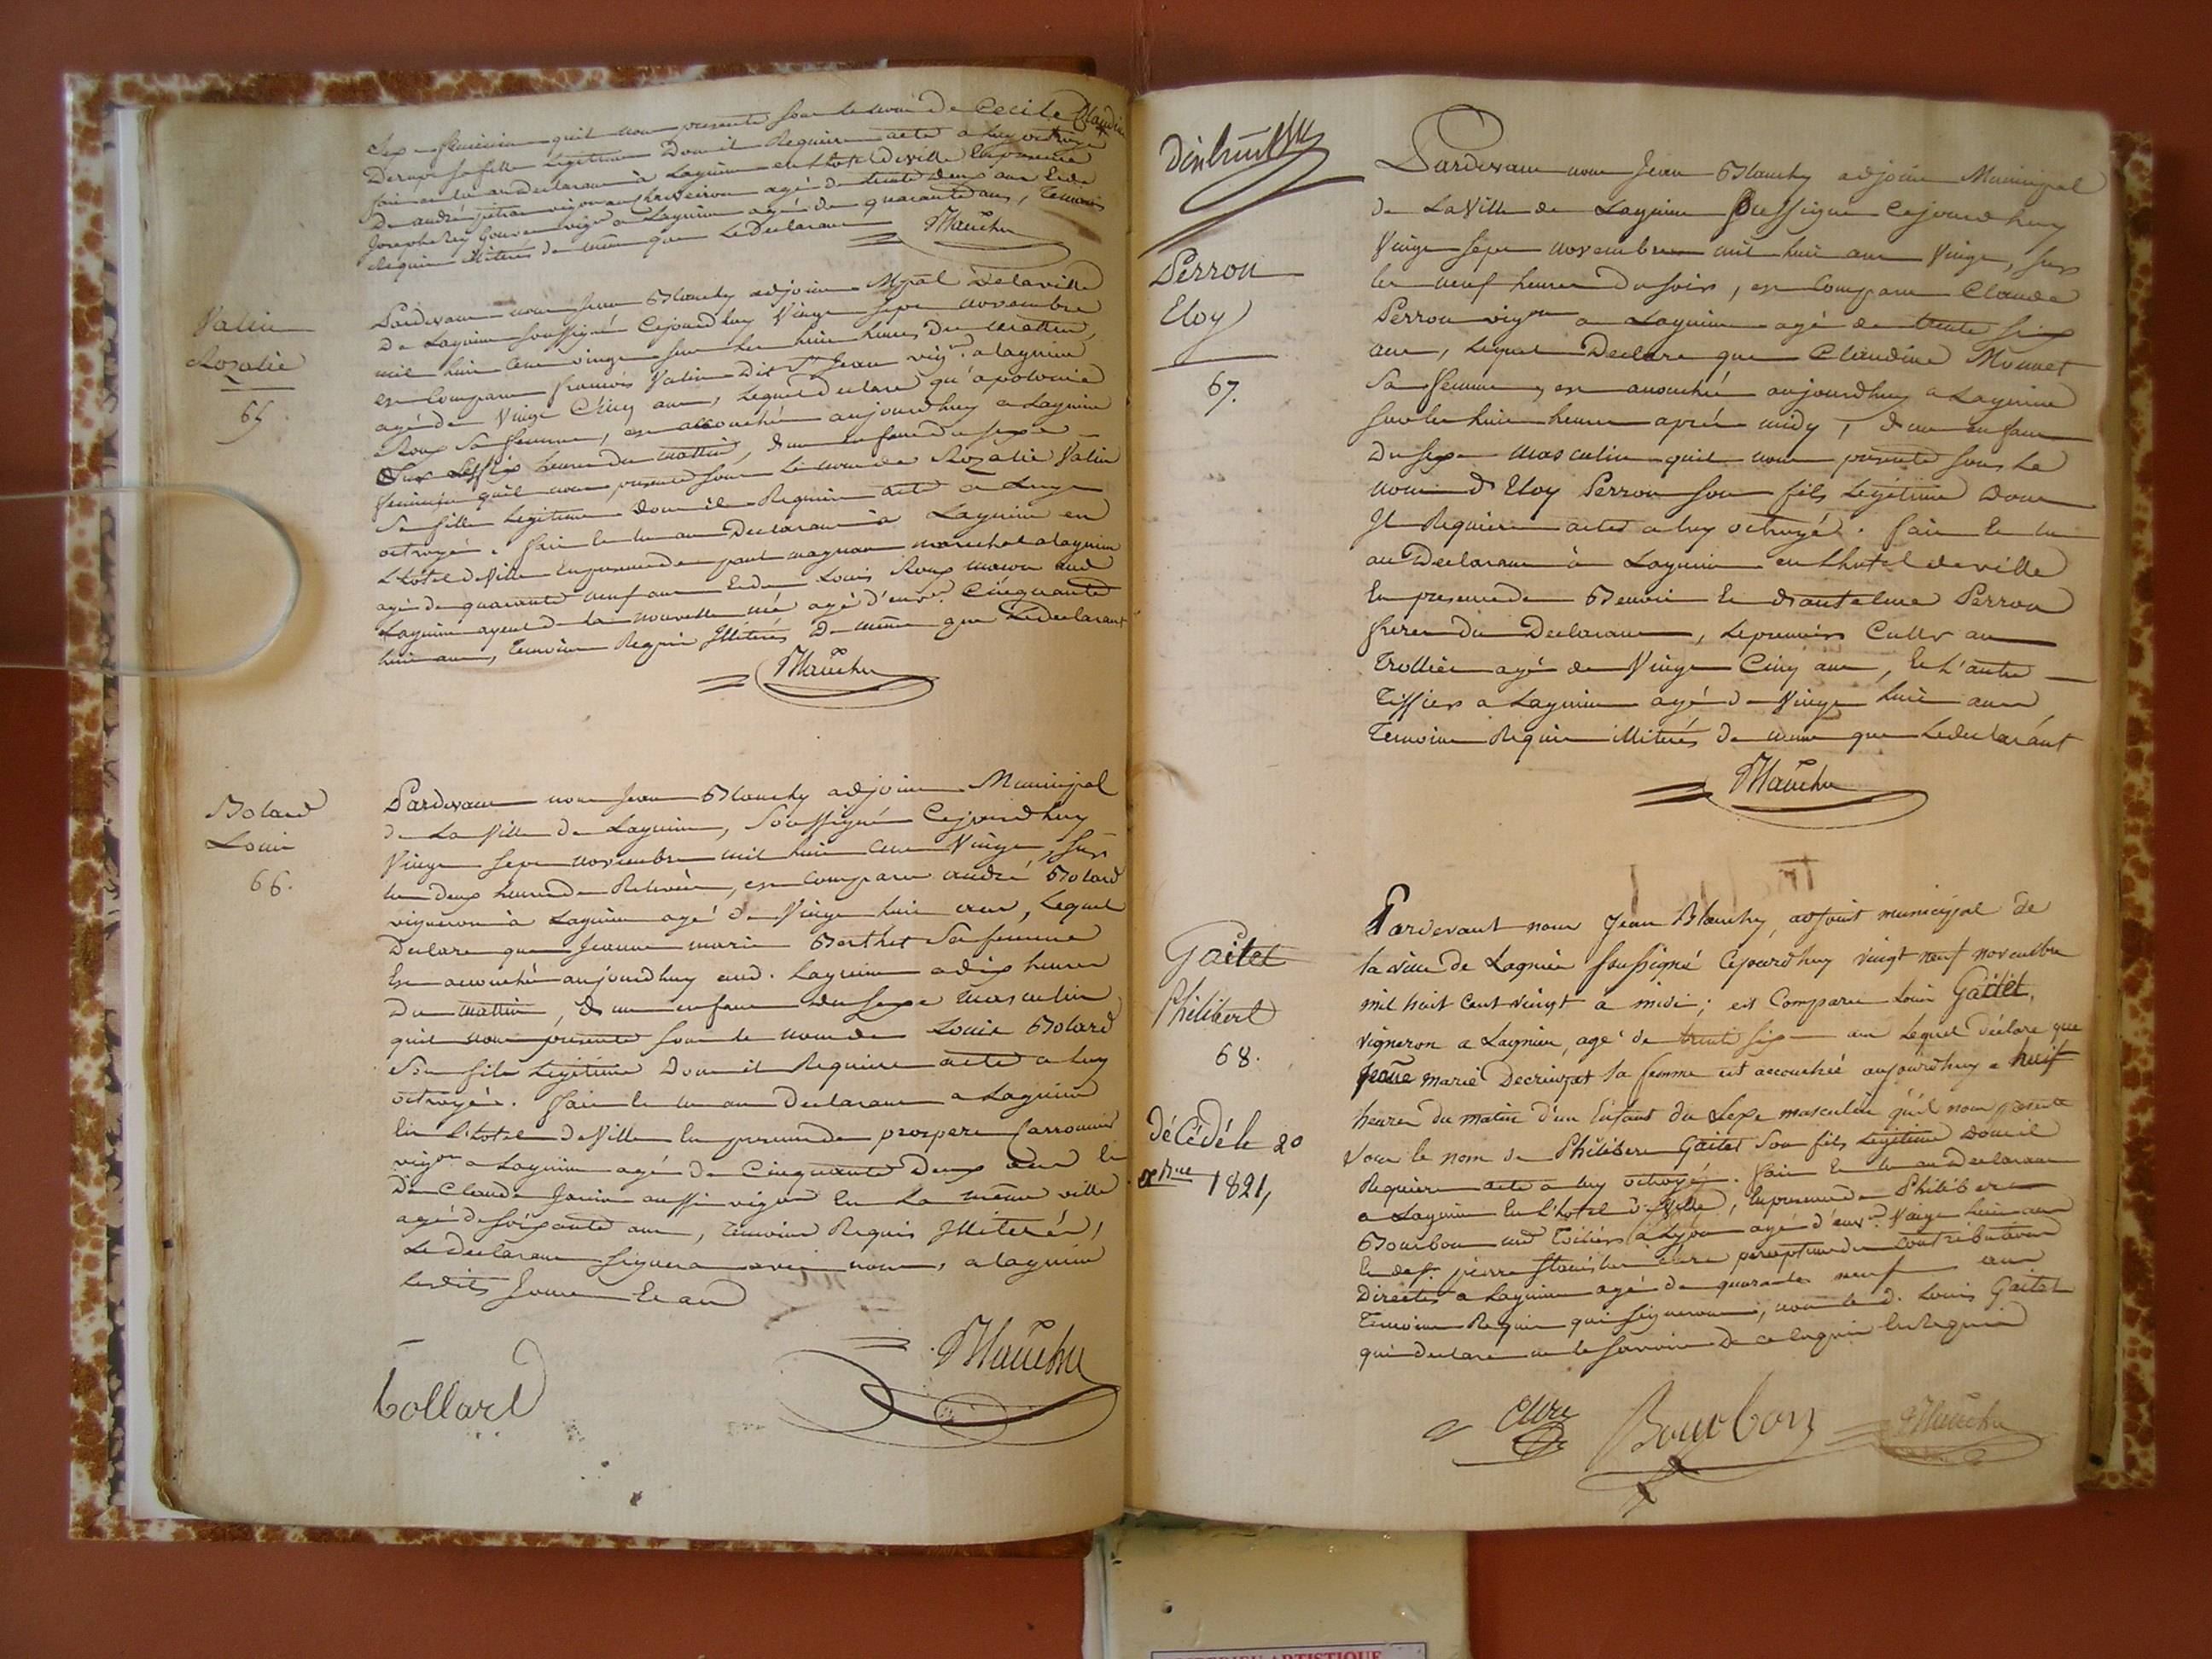 Sexe feminin quil nous presente sous le nom de Cecile Claudine
sa fille Legitime Dont il Requiere acte a luy octroyé
fait et lu au declarant à Lagnieu en L'hotel de ville En presence
De andré vigneron agé de trente deux ans Et de
Joseph Rey vign a Lagnieu agé de quarante ans, Temoins
Requis illiterés de même que Le Declarant
Blanchy
Valin
Rozalie
65
Pardevant nous Jean Blanchy adjoint Mpal Delaville
De Lagnieu soussigné Cejourdhuy Vingt sept novembre
mil huit Cent vingt sur les huit heures Du mattin,
est Comparu francois Valin Dit St Jean vign. a lagnieu
agé de Vingt Cinq ans, Lequel declare qu'apolonie
Roux Sa femme, est accouchée aujourdhuy a Lagnieu
Sur Les six heures du mattin, d'un Enfant du sexe
feminin quil nous presente sous Le nom de Rozalie Valin
Sa fille Legitime dont il Requiere acte a Luy
octroyé. fait Et lu au Declarant à Lagnieu en
L'hôtel de Ville En presence de paul magnan marechal a lagnieu
agé de quarante neuf ans Et de Louis Roux macon aud
Lagnieu ayeul de la nouvelle née agé d'envn. Cinquante
huit ans, Temoins Requis Illiterés De même que Le declarant
Blanchy
Bolard
Louis
66.
Pardevant nous Jean Blanchy adjoint Municipal
de La Ville de Lagnieu, Soussigné Cejourdhuy
Vingt sept novembre mil huit Cent Vingt, sur
les deux heures de Relevée, est Comparu andré Bolard
vigneron à Lagnieu agé de Vingt huit ans, Lequel
Declare que Jeanne marie Berthet Sa femme
Est accouchée aujourdhuy aud. Lagnieu a dix heures
Du mattin, d'un enfant du Sexe masculin
quil nous presente sous le nom de Louis Bolard
Son fils Legitime Dont il Requiere acte a luy
octroyée. fait Et lu au Declarant a Lagnieu
En L'hotel de Ville En presence de prospere
vignon a Lagnieu agé de Cinquante Deux ans Et
De Claude Janin aussi vignon En La même ville
agé de soixante ans, Temoins Requis Illiterés,
Le declarant signera avec nous, a lagnieu
Lesdits Jour Et an
Bollard
Blanchy
Perron
Eloy
67.
Pardevant nous Jean Blanchy adjoint Municipal
de La Ville de Lagnieu Soussigné Cejourdhuy
Vingt sept novembre mil huit cent Vingt, sur
les neuf heures Du soir, est Comparu Claude
Perron vignon a Lagnieu agé de trente six
ans, Lequel Declare que Claudine Monnet
Sa femme, est accouchée aujourdhuy a Lagnieu
sur les huit heures aprés midy, d'un enfant
Du sexe masculin quil nous presente sous Le
nom d'Eloy Perron son fils Legitime Dont
Il Requiere acte a luy octroyé. fait Et lu
au Declarant à Lagnieu en L'hotel de ville
En presence de Benoit Et d'antelme Perron
freres Du Declarant, Le premier Cultr au
Trollier agé de Vingt Cinq ans, Et L'autre
Tissier a Lagnieu agé de Vingt huit ans
Temoins Requis illiterés De même que Le declarant
Blanchy
Gaitet
Philibert
68.
décédé le 20
1821,
Pardevant nous Jean Blanchy, adjoint municipal de
la ville de Lagnieu soussigné Cejourdhuy vingt neuf novembre
mil huit Cent vingt a midi; est Comparu Louis Gaitet,
vigneron a Lagnieu, agé de trente six ans Lequel déclare que
Jeane marie Decrinzat sa femme est accouchée aujourdhuy a huit
heures du matin d'un Enfant du Sexe masculin qu'il nous presente
sous le nom de Philibert Gaitet Son fils Legitime Dont il
Requiere acte a luy octroyé. fait Et lu au Declarant
a Lagnieu En L'hotel de Ville, En presence de Philibert
Bourbon md Toilier à Lyon agé d'envn. Vingt huit ans
Et de sr. pierre stanislas Cure percepteur des Contributions
Directes a Lagnieu agé de quarante neuf ans
Temoins Requis qui signeront, non led. Louis Gaitet
qui declare ne le savoir De ce Enquis Et Requis
Cure
Bourbon
Blanchy